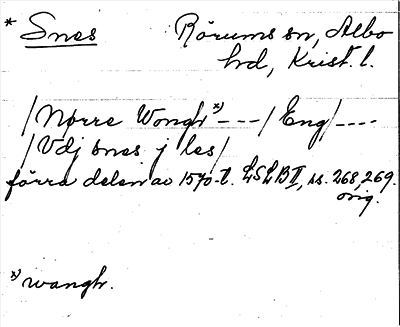 * Snes Rörums sn, Albo
hd, Krist. l.
/Nørre Wongr *) --- / Eng/ ----
/Vdj snes j les/
förra delen av 1570-t. LSLB II, ss. 268, 269.
orig.
*) wangr.